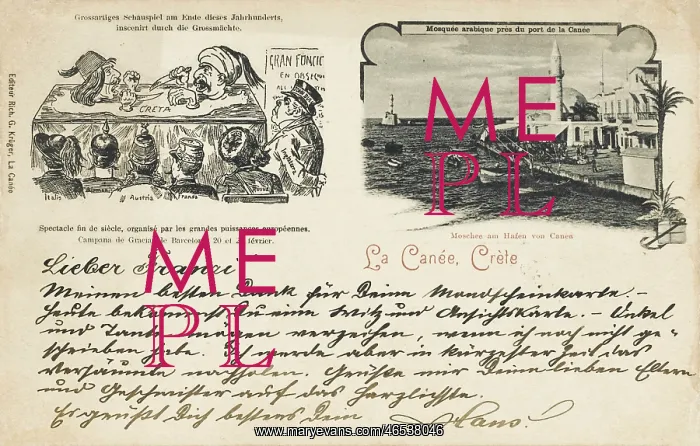 Grossartiges Schauspiel am Ende dieses Jahrhunderts,
inscenirt durch die Grossmächte.
GRAN FUNCIÓ
EN OBSEQUI
CRETA
Italia
Austria
Russia
Spectacle fin de siècle, organisé par les grandes puissances européennes.
Campana de Gracia de Barcelona, 20 et février.
Editeur Rich. G. Krüger, La Canée
Mosquée arabique près du port de la Canée
Moschee am Hafen von Canea
La Canée, Crète
ME
PL
ME
PL
Lieber Franzi
Meinen besten Dank für Deine Mondscheinkarte. –
Heute bekommst Du eine Witz und Ansichtskarte. – Onkel
und Tante mögen verzeihen, wenn ich noch nicht ge-
schrieben habe. Ich werde aber in kürzester Zeit das
Versäumte nachholen. Grüße mir Deine lieben Eltern
und Geschwister auf das Herzlichste.
Es grüßt Dich bestens Dein Hans!
www.maryevans.com/46538046